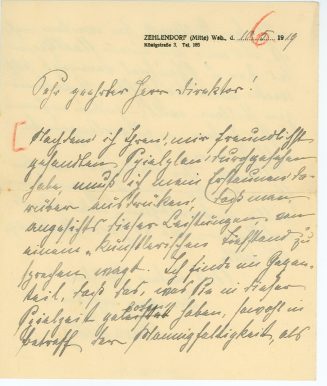 ZEHLENDORF (Mitte) Wsb., d. 10. 6. 1919
Königstraße 3. Tel. 185
Sehr geehrter Herr Direktor!
Nachdem ich Ihren, mir freundlichst
gesandten Spielplan durchgesehen
habe, muß ich mein Erstaunen da-
rüber ausdrücken, daß man
angesichts dieser Leistungen von
einem "künstlerischen Tiefstand" zu
sprechen wagt. Ich finde im Gegen-
teil, daß das, was Sie in dieser
Spielzeit geleistet haben, sowohl in
betreff der Mannigfaltigkeit, als